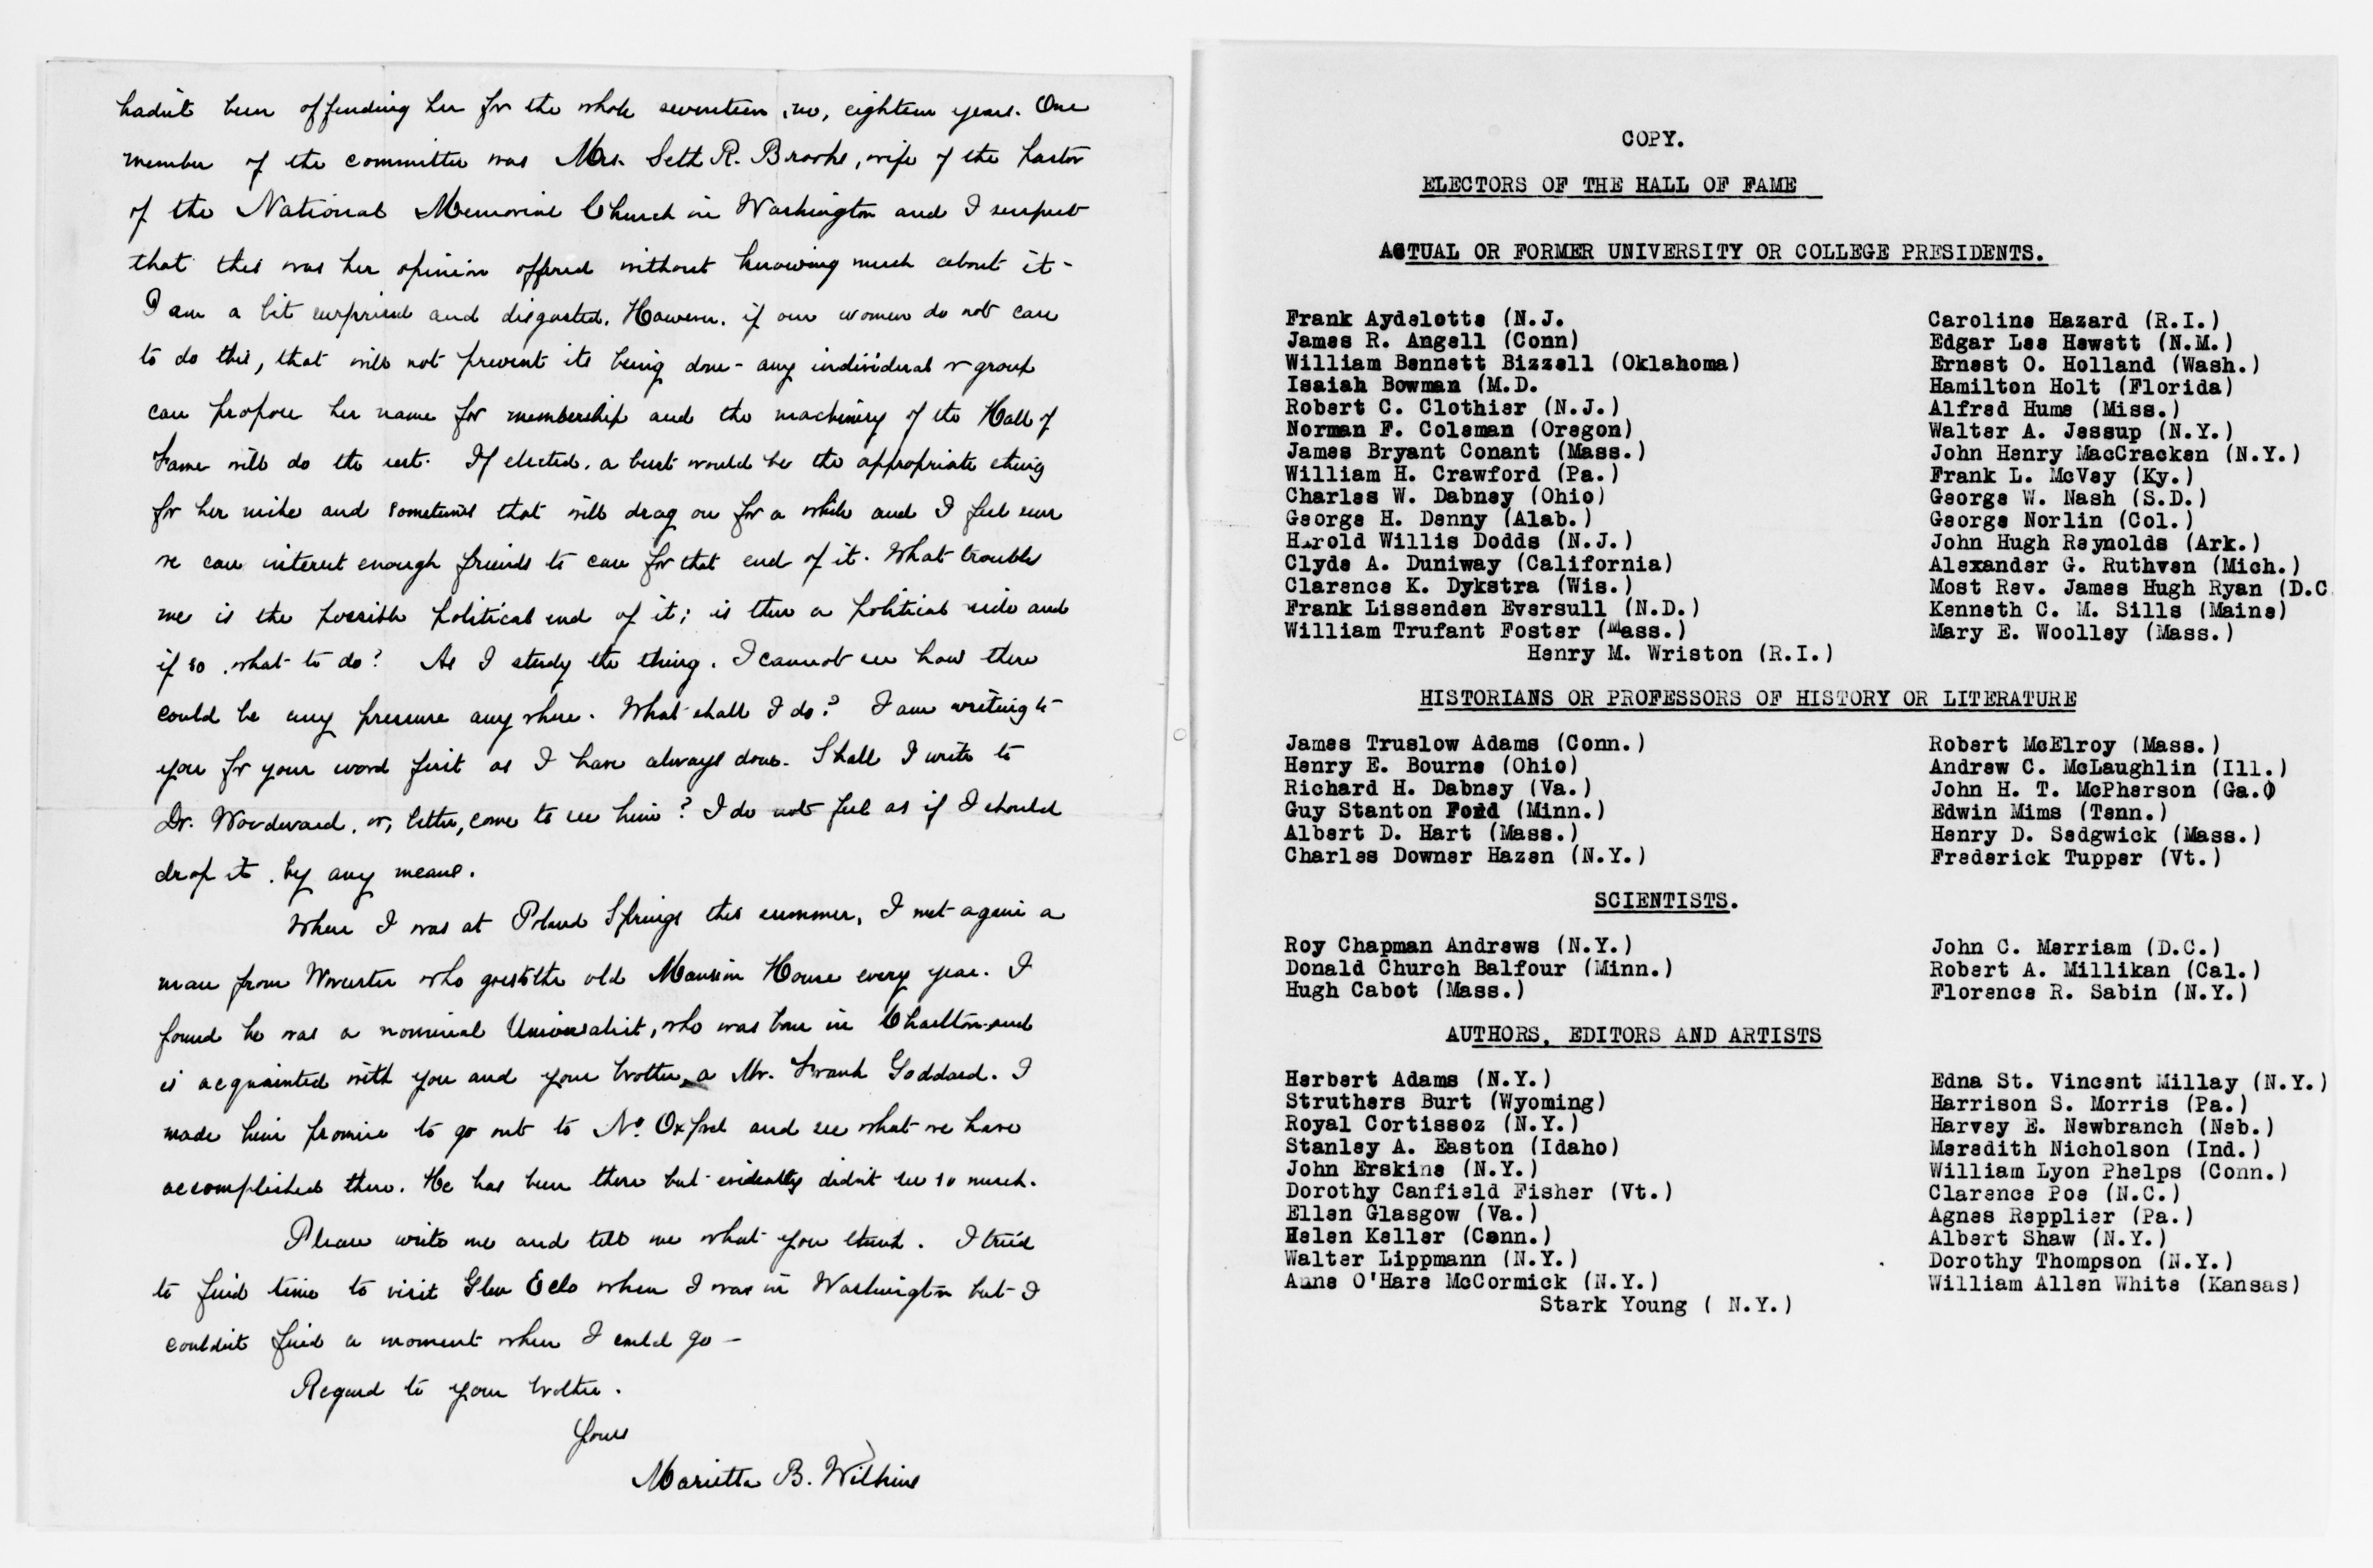 hadn't been offending her for the whole seventeen, no, eighteen years. One
member of the committee was Mrs. Seth R. Brooks, wife of the pastor
of the National Memorial Church in Washington and I suspect
that this was her opinion offered without knowing much about it -
I am a bit surprised and disgusted. However, if our women do not care
to do this, that will not prevent its being done - any individual or group
can propose her name for membership and the machinery of the Hall of
Fame will do the rest. If elected, a bust would be the appropriate thing
for her niche and sometimes that will drag on for a while and I feel sure
we can interest enough friends to care for that end of it. What troubles
me is the possible political end of it; is there a political side and
if so, what to do? As I study the thing, I cannot see how there
could be any pressure anywhere. What shall I do? I am writing to
you for your word first as I have always done. Shall I write to
Dr. Woodward, or, better, come to see him? I do not feel as if I should
drop it, by any means.
When I was at Poland Springs this summer, I met again a
man from Worcester who goes to the old Mansion House every year. I
found he was a nominal Universalist, who was born in Charlton and
is acquainted with you and your brother, a Mr. Frank Goddard. I
made him promise to go out to No. Oxford and see what we have
accomplished there. He has been there but evidently didn't see so much.
Please write me and tell me what you think. I tried
to find time to visit Glen Echo when I was in Washington but I
couldn't find a moment when I could go -
Regard to your brother.
Yours
Marietta B. Wilkins
COPY.
ELECTORS OF THE HALL OF FAME
ACTUAL OR FORMER UNIVERSITY OR COLLEGE PRESIDENTS.
Frank Aydelotte (N.J. Caroline Hazard (R.I.)
James R. Angell (Conn) Edgar Lee Hewett (N.M.)
William Bennett Bizzell (Oklahoma) Ernest O. Holland (Wash.)
Isaiah Bowman (M.D. Hamilton Holt (Florida)
Robert C. Clothier (N.J.) Alfred Hume (Miss.)
Norman F. Coleman (Oregon) Walter A. Jessup (N.Y.)
James Bryant Conant (Mass.) John Henry MacCracken (N.Y.)
William H. Crawford (Pa.) Frank L. McVey (Ky.)
Charles W. Dabney (Ohio) George W. Nash (S.D.)
George H. Denny (Alab.) George Norlin (Col.)
Harold Willis Dodds (N.J.) John Hugh Reynolds (Ark.)
Clyde A. Duniway (California) Alexander G. Ruthven (Mich.)
Clarence K. Dykstra (Wis.) Most Rev. James Hugh Ryan (D.C
Frank Lissenden Eversull (N.D.) Kenneth C. M. Sills (Maine)
William Trufant Foster (Mass.) Mary E. Woolley (Mass.)
Henry M. Wriston (R.I.)
HISTORIANS OR PROFESSORS OF HISTORY OR LITERATURE
James Truslow Adams (Conn.) Robert McElroy (Mass.)
Henry E. Bourne (Ohio) Andrew C. McLaughlin (Ill.)
Richard H. Dabney (Va.) John H. T. McPherson (Ga.)
Guy Stanton Ford (Minn.) Edwin Mims (Tenn.)
Albert D. Hart (Mass.) Henry D. Sedgwick (Mass.)
Charles Downer Hazen (N.Y.) Frederick Tupper (Vt.)
SCIENTISTS.
Roy Chapman Andrews (N.Y.) John C. Merriam (D.C.)
Donald Church Balfour (Minn.) Robert A. Millikan (Cal.)
Hugh Cabot (Mass.) Florence R. Sabin (N.Y.)
AUTHORS, EDITORS AND ARTISTS
Herbert Adams (N.Y.) Edna St. Vincent Millay (N.Y.)
Struthers Burt (Wyoming) Harrison S. Morris (Pa.)
Royal Cortissoz (N.Y.) Harvey E. Newbranch (Neb.)
Stanley A. Easton (Idaho) Meredith Nicholson (Ind.)
John Erskine (N.Y.) William Lyon Phelps (Conn.)
Dorothy Canfield Fisher (Vt.) Clarence Poe (N.C.)
Ellen Glasgow (Va.) Agnes Repplier (Pa.)
Helen Keller (Conn.) Albert Shaw (N.Y.)
Walter Lippmann (N.Y.) Dorothy Thompson (N.Y.)
Anne O'Hare McCormick (N.Y.) William Allen White (Kansas)
Stark Young ( N.Y.)